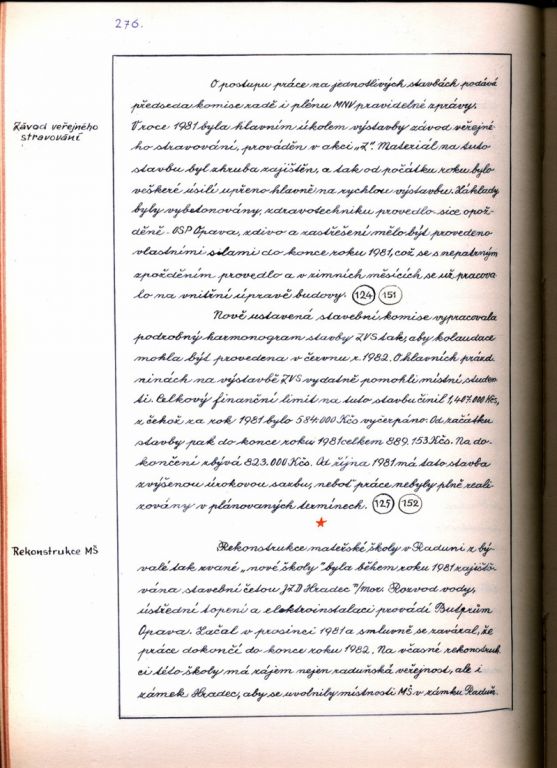 276.
O postupu práce na jednotlivých stavbách podává
předseda komise radě i plénu MNV pravidelné zprávy.
Závod veřejného
stravování
V roce 1981 byla hlavním úkolem výstavby závod veřejné
ho stravování, prováděn v akci „Z". Materiál na tuto
stavbu byl zhruba zajištěn, a tak od počátku roku bylo
veškeré úsilí upřeno hlavně na rychlou výstavbu. Základy
byly vybetonovány, zdravotechniku provedlo sice opož-
děně - OSP Opava, zdivo a zastřešení mělo být provedeno
vlastními silami do konce roku 1981, což se s nepatrným
zpožděním provedlo a v zimních měsících se už pracova
lo na vnitřní úpravě budovy. 124 151
Nově ustavená stavební komise vypracovala
podrobný harmonogram stavby ZVS tak, aby kolaudace
mohla být provedena v červnu r. 1982. O hlavních prázd
ninách na výstavbě ZVS vydatně pomohli místní studen
ti. Celkový finanční limit na tuto stavbu činil 1,407.000 Kčs,
z čehož za rok 1981 bylo 584.000 Kčs vyčerpáno. Od začátku
stavby pak do konce roku 1981 celkem 889.153 Kčs. Na do-
končení zbývá 823.000 Kčs. Od října 1981 má tato stavba
zvýšenou úrokovou sazbu, neboť práce nebyly plně reali
zovány v plánovaných termínech. 125 152
Rekonstrukce MŠ
Rekonstrukce mateřské školy v Raduni z bý-
valé tak zvané „nové školy" byla během roku 1981 zajišťo-
vána stavební četou JZD Hradec n/mor. Rozvod vody,
ústřední topení a elektroinstalaci provádí Butprům
Opava. Začal v prosinci 1981 a smluvně se zavázal, že
práce dokončí do konce roku 1982. Na včasné rekonstruk
ci této školy má zájem nejen raduňská veřejnost, ale i
zámek Hradec, aby se uvolnily místnosti MŠ v zámku Raduň.